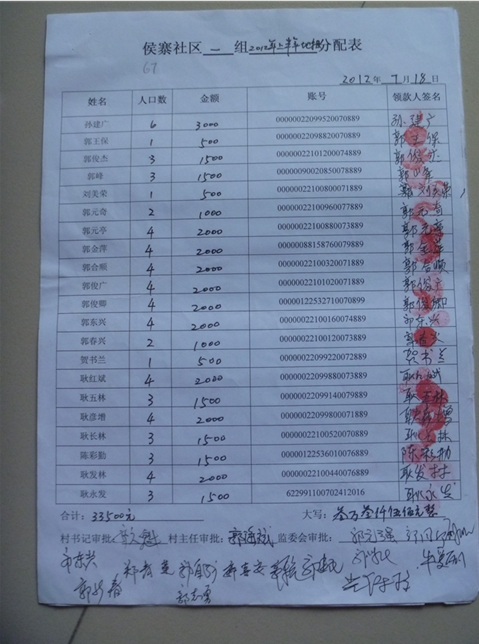 侯寨社区一组2012年上半年地租分配表
67
2012年7月18日
姓名 人口数 金额 账号 领款人签名
孙建广 6 3000 00000022099520070889 孙建广
郭王保 1 500 00000022098820070889 郭王保
郭俊杰 3 1500 00000022101200074889 郭俊杰
郭峰 3 1500 00000090020850078889
刘美荣 1 500 00000022100800071889
郭元奇 2 1000 00000022100960077889 郭元奇
郭元亭 4 2000 00000022100880073889 郭元亭
郭金萍 4 2000 00000088158760079889 郭金萍
郭合顺 4 2000 00000022100320071889 郭合顺
郭俊广 4 2000 00000022101020071889 郭俊广
郭俊卿 4 2000 00000122532710070899 郭俊卿
郭东兴 4 2000 00000022100160074889 郭东兴
郭春兴 2 1000 00000022100120073889
贺书兰 1 500 00000022099220072889 贺书兰
耿红斌 4 2000 00000022099880073889 耿红斌
耿五林 3 1500 00000022099140079889 耿五林
耿彦增 4 2000 00000022099800071889 耿彦增
耿长林 3 1500 00000022100520070889 耿长林
陈彩勤 3 1500 00000122536010076889 陈彩勤
耿发林 4 2000 00000022100440076889 耿发林
耿永发 3 1500 622991100702412016 耿永发
合计：33500元 大写：叁万叁仟伍佰元整
村书记审批： 村主任审批： 监委会审批：